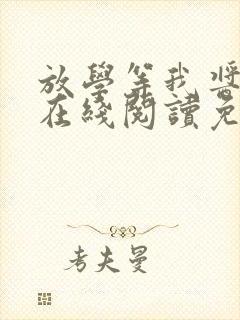 放學等我 將
在綫閱讀免
考夫曼